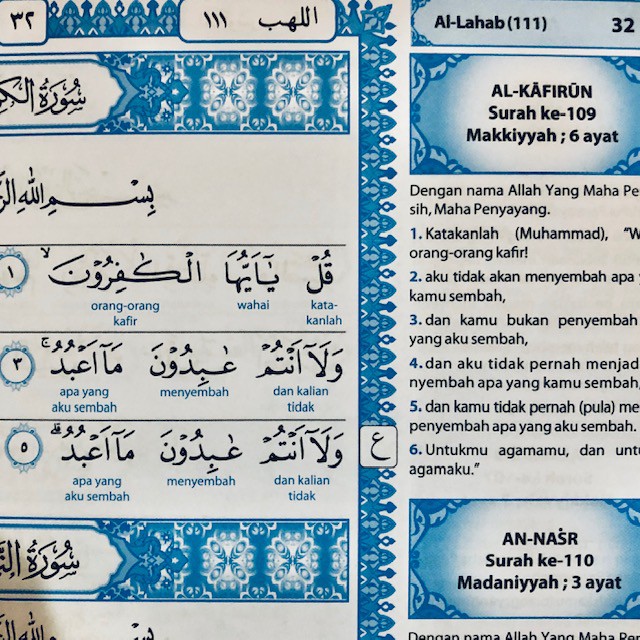 ٣٢ ١١١ اللهب
سُوْرَةُ
بِسْمِ اللّٰهِ
قُلْ يٰٓاَيُّهَا الْكٰفِرُوْنَۙ ١
kata-kanlah wahai orang-orang kafir
وَلَآ اَنْتُمْ عٰبِدُوْنَ مَآ اَعْبُدُۚ ٣
dan kalian tidak menyembah apa yang aku sembah
وَلَآ اَنْتُمْ عٰبِدُوْنَ مَآ اَعْبُدُۗ ٥
dan kalian tidak menyembah apa yang aku sembah
ع
سُوْرَةُ
بِسْمِ اللّٰهِ
Al-Lahab (111) 32
AL-KĀFIRŪN
Surah ke-109
Makkiyyah ; 6 ayat
Dengan nama Allah Yang Maha
sih, Maha Penyayang.
1. Katakanlah (Muhammad),
orang-orang kafir!
2. aku tidak akan menyembah apa
kamu sembah,
3. dan kamu bukan penyembah
yang aku sembah,
4. dan aku tidak pernah
nyembah apa yang kamu sembah,
5. dan kamu tidak pernah (pula)
penyembah apa yang aku sembah.
6. Untukmu agamamu, dan
agamaku."
AN-NAṢR
Surah ke-110
Madaniyyah ; 3 ayat
Dengan nama Allah Yang Maha